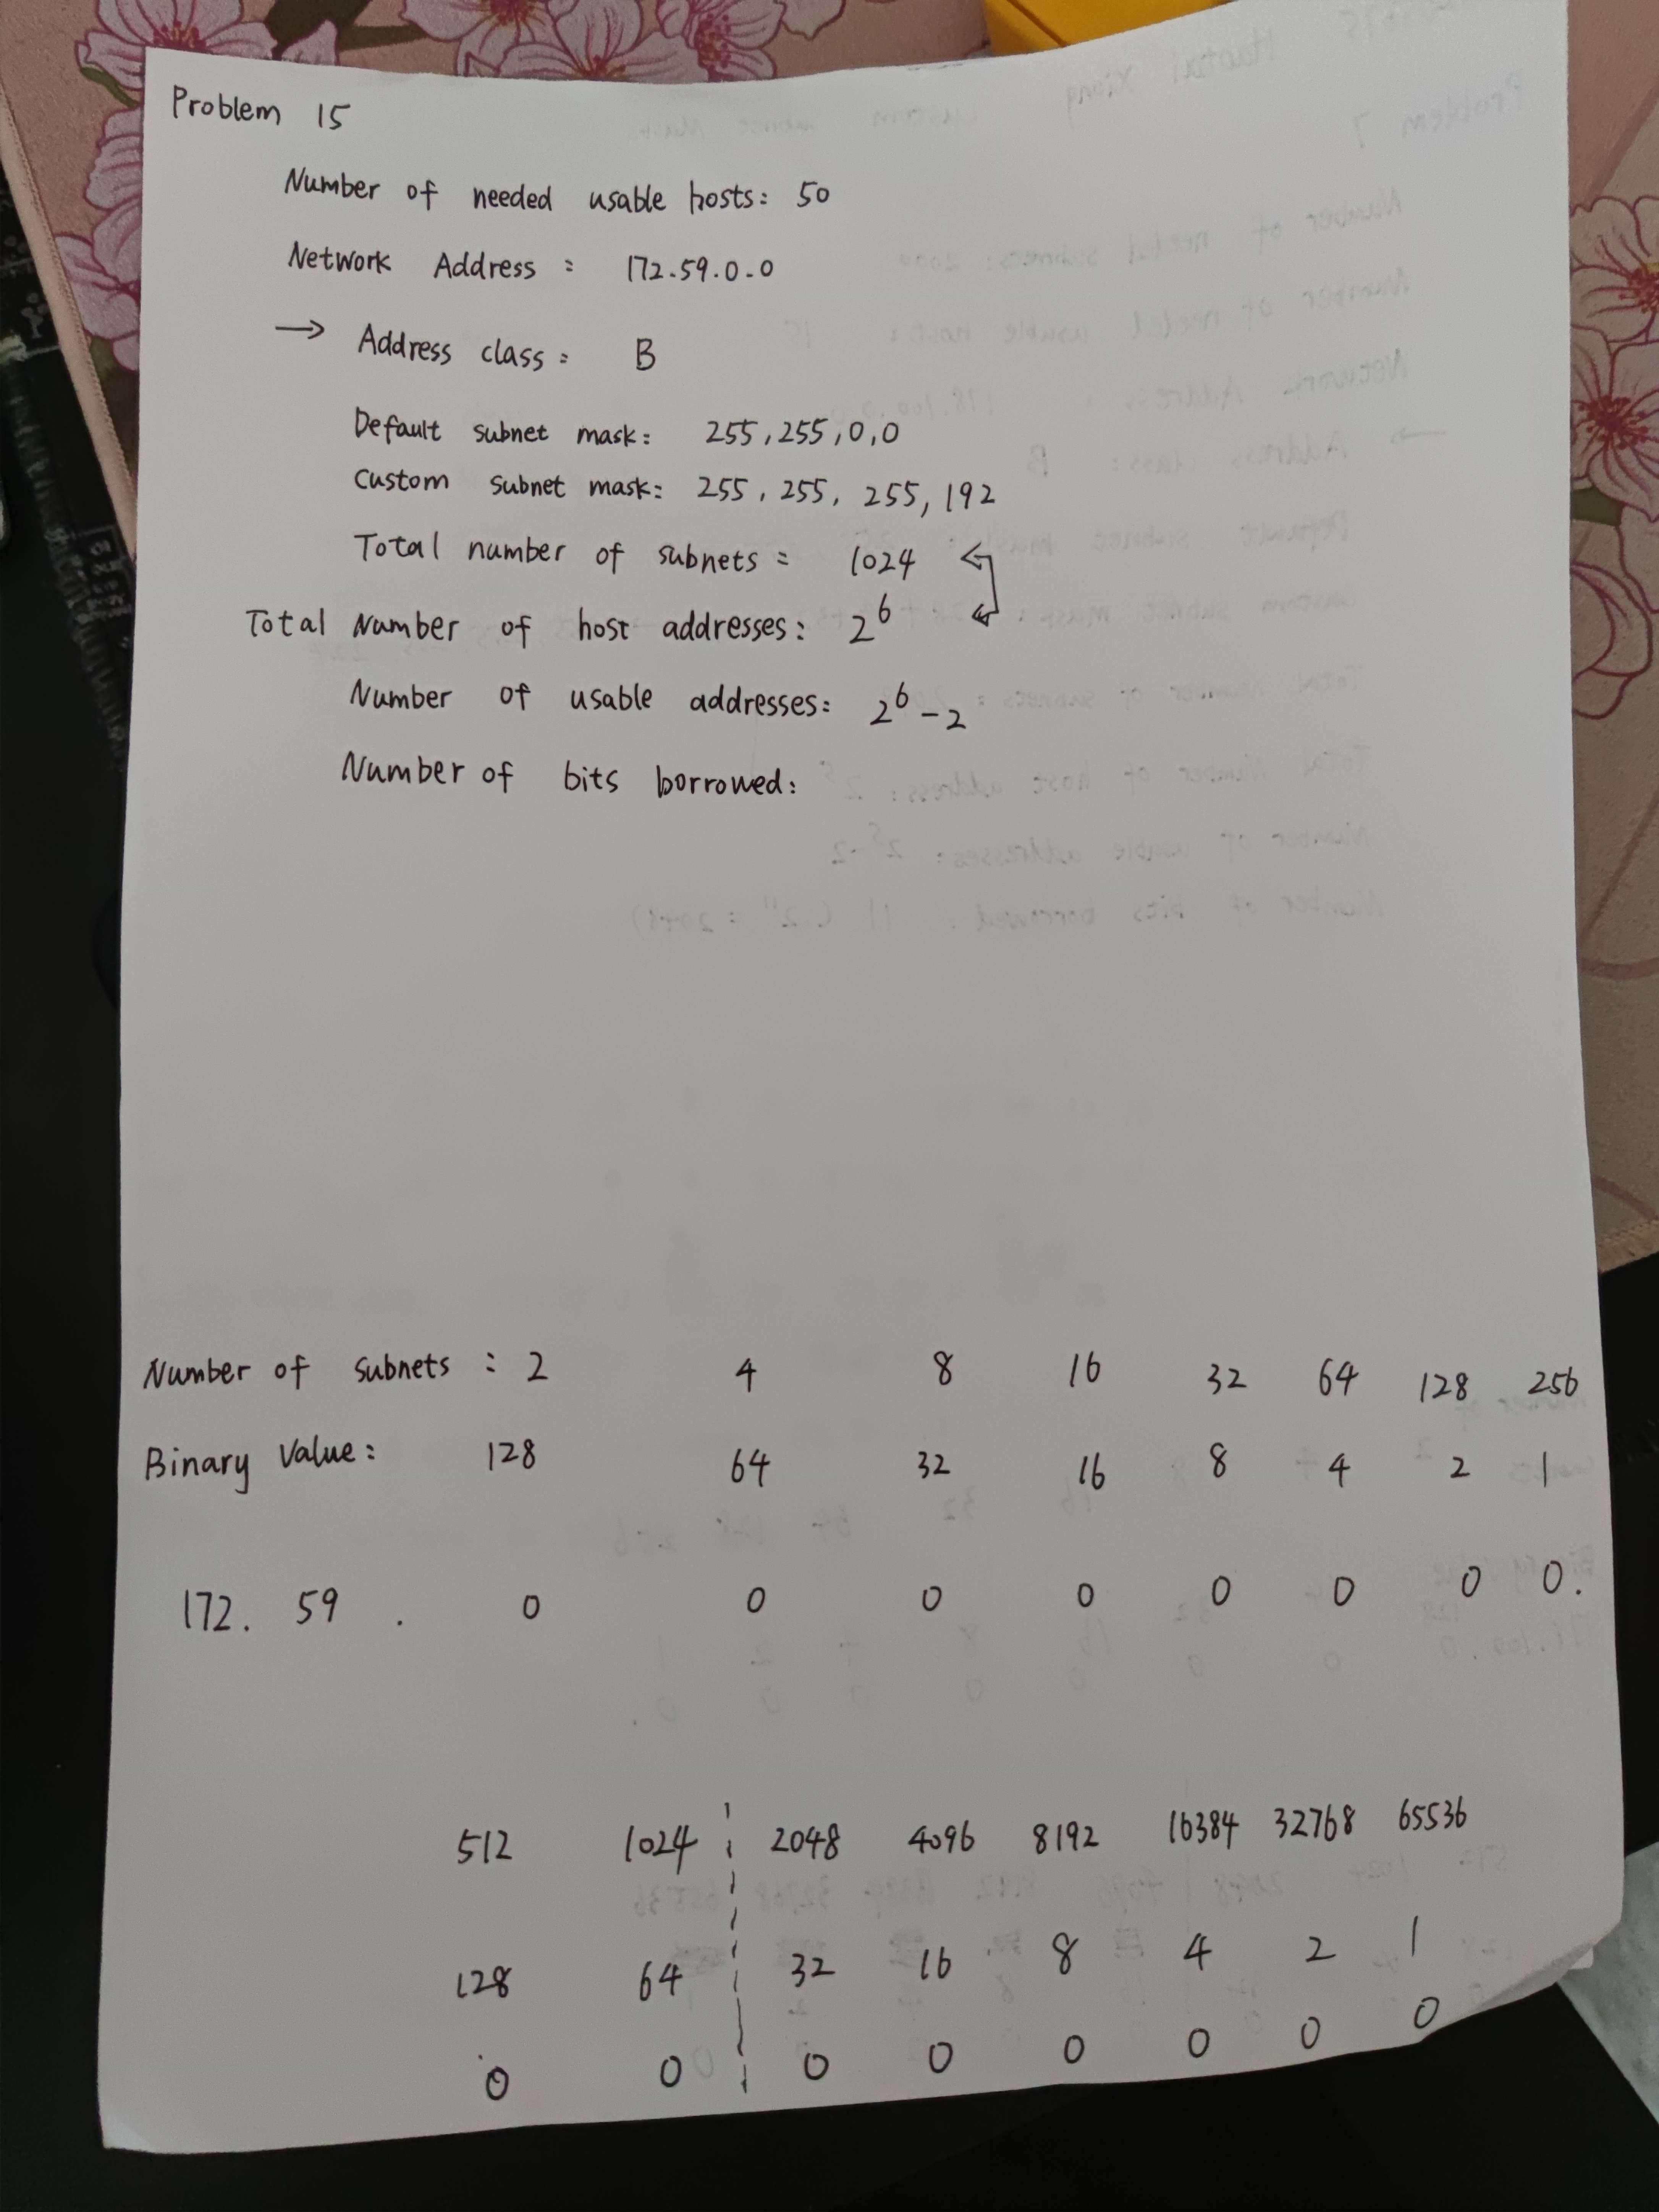 Problem 15
Number of needed usable hosts: 50
Network Address: 172.59.0.0
→ Address class: B
Default subnet mask: 255,255,0,0
Custom subnet mask: 255, 255, 255, 192
Total number of subnets = 1024
Total Number of host addresses: 2^6
Number of usable addresses: 2^6 - 2
Number of bits borrowed:
Number of subnets: 2 4 8 16 32 64 128 256
Binary Value: 128 64 32 16 8 4 2 1
172. 59 . 0 0 0 0 0 0 0 0.
512 1024 2048 4096 8192 16384 32768 65536
128 64 32 16 8 4 2 1
0 0 0 0 0 0 0 0